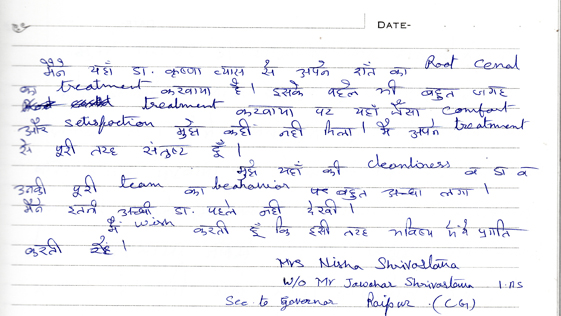 DATE-
मैने यहाँ डा. कृष्णा व्यास से अपने दाँत का Root Cenal
का treatment करवाया है। इसके पहले भी बहुत जगह
treatment करवाया पर यहाँ जैसा comfort
और setisfaction मुझे कही नही मिला। मैं अपने treatment
से पूरी तरह संतुष्ट हूँ।
मुझे यहाँ की cleanliness व डा व
उनकी पूरी team का beahavior पर बहुत अच्छा लगा।
मैंने इतनी अच्छी डा. पहले नही देखी।
मैं wish करती हूँ कि इसी तरह भविष्य में प्रगति
करती रहें।
Mrs Nisha Shrivastava
W/o Mr Jawahar Shrivastava I.AS
Sec. to Governor Raipur (CG)